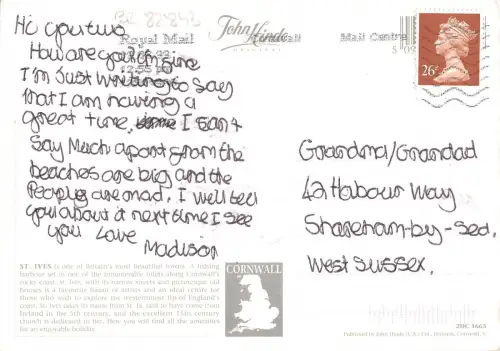 BR 82843
Hi you two
How are you I'm fine
I'm Just writing to say
that I am having a
great time, I can't
Say Much apart from the
beaches are big and the
Peoples are mad. I will tell
you about it next time I see
you Love
Madison
Royal Mail
Mail Centre
12.55 pm
John Hinde
ORIGINAL
26p
Grandma/Grandad
42 Habour Way
Shoreham-by-sea.
West Sussex.
ST. IVES is one of Britain's most beautiful towns. A fishing
harbour set in one of the innumerable inlets along Cornwall's
rocky coast, St. Ives, with its narrow streets and picturesque old
houses is a favourite haunt of artists and an ideal centre for
those who wish to explore the westernmost tip of England's
coast. St. Ives takes its name from St. Ia, said to have come from
Ireland in the 5th century, and the excellent 15th century
church is dedicated to her. Here you will find all the amenities
for an enjoyable holiday.
CORNWALL
2DC 1663
Published by John Hinde (U.K.) Ltd., Redruth, Cornwall.